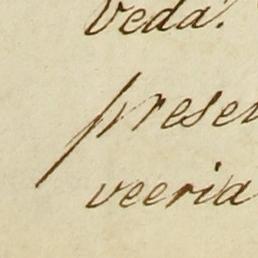 veda.
presen
veeria